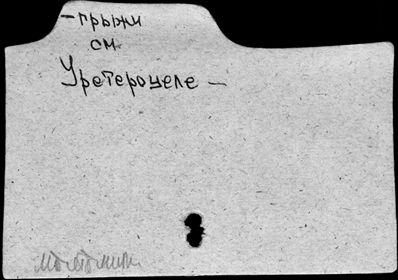 – грыжи
см.
Уретероцеле –